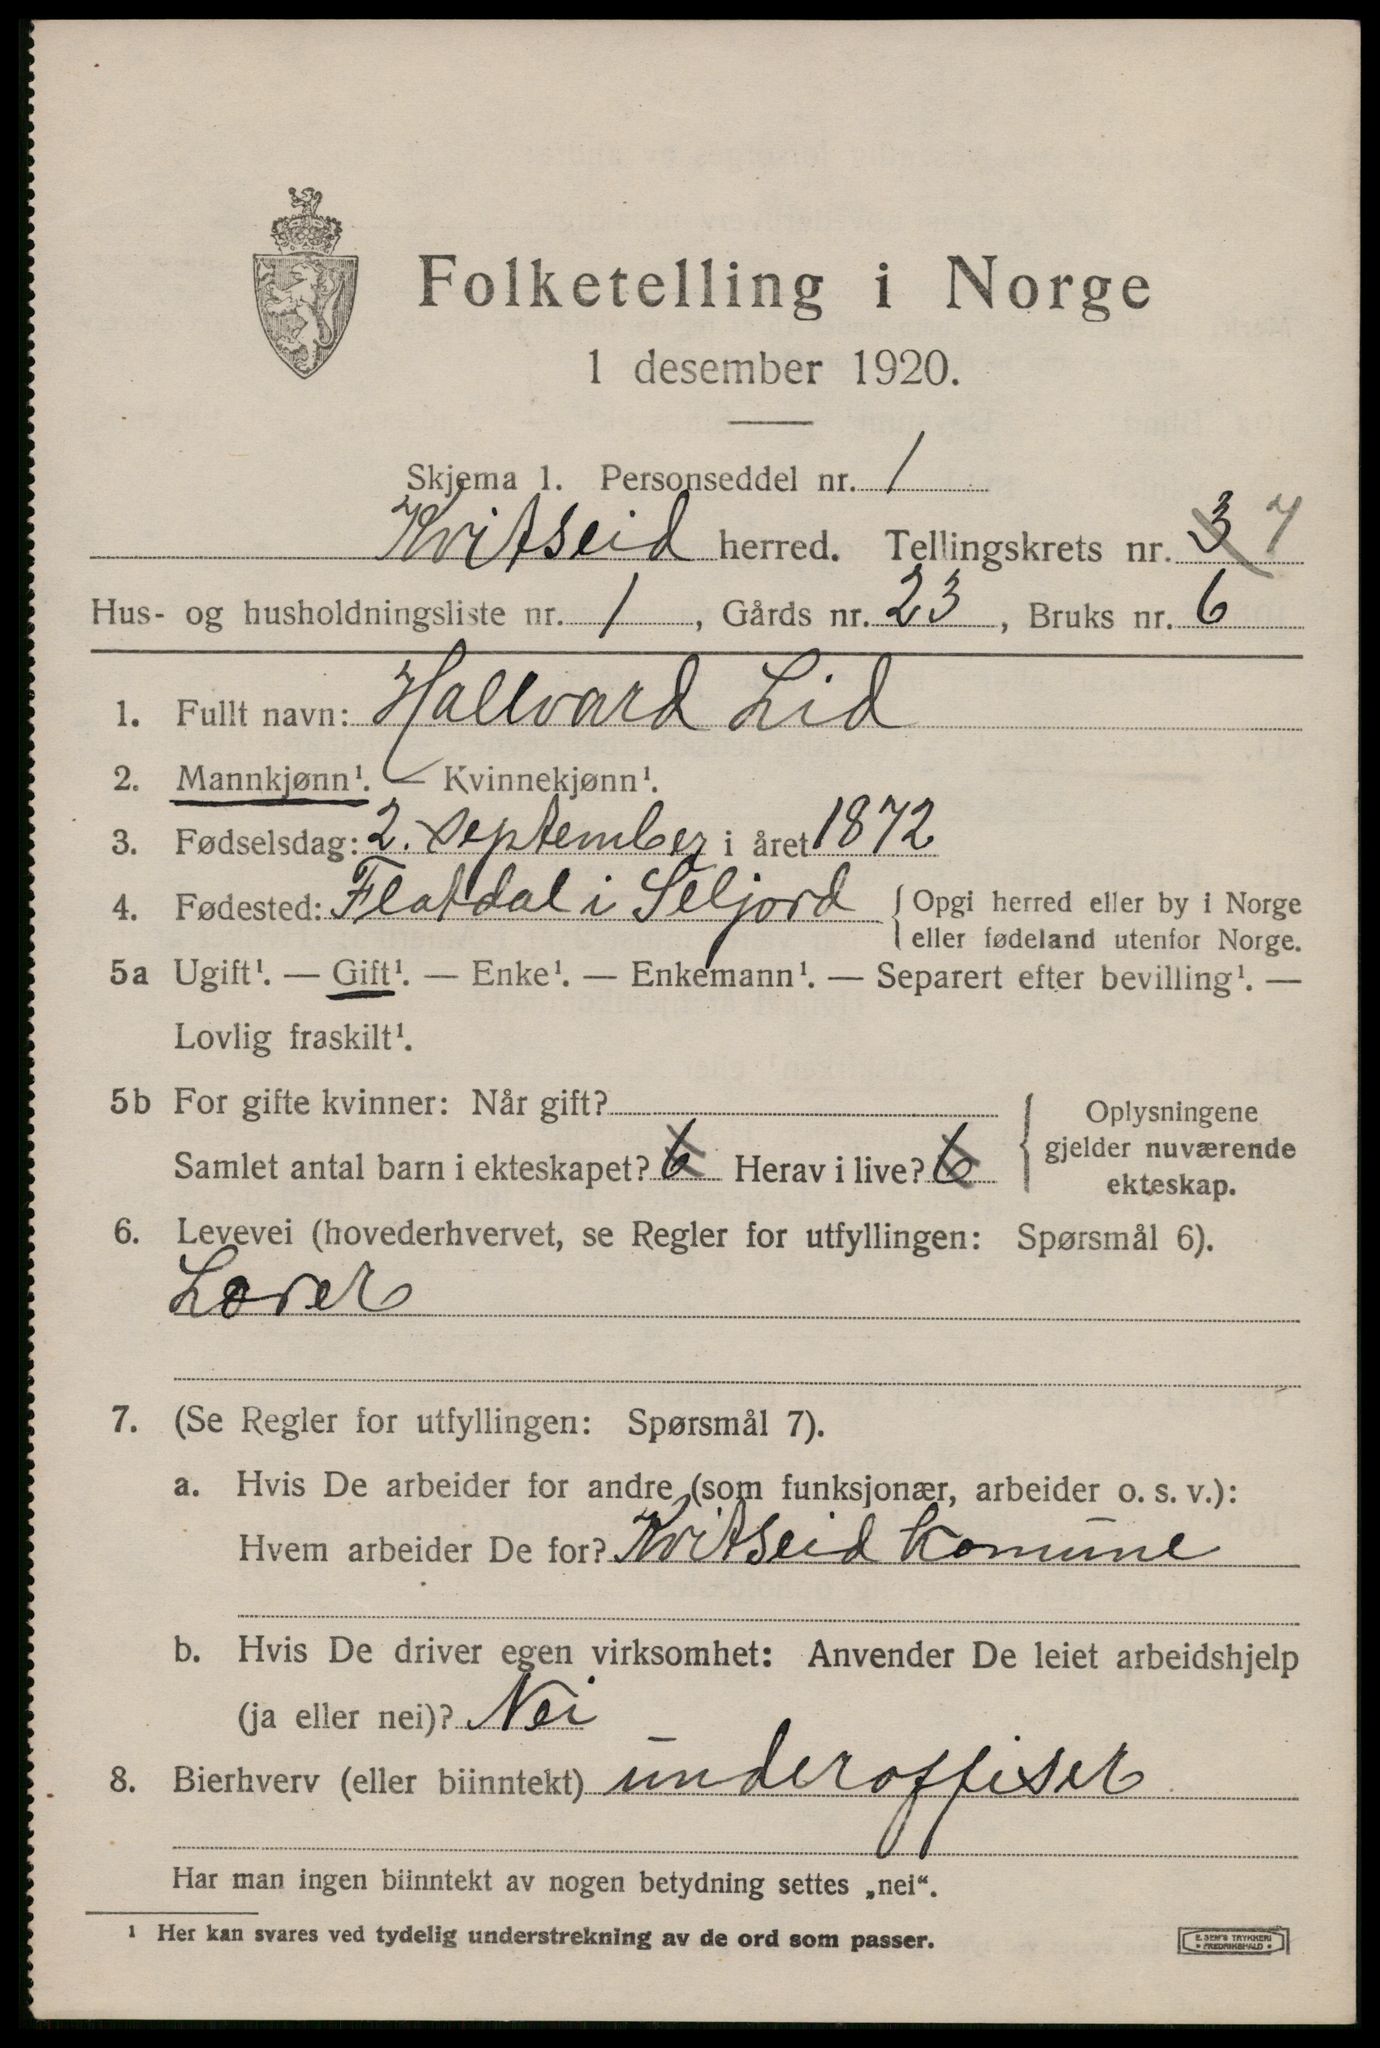 Folketelling i Norge
1 desember 1920.
Skjema 1. Personseddel nr. 1
Kvitseid herred. Tellingskrets nr. 3 7
Hus- og husholdningsliste nr. 1, Gårds nr. 23, Bruks nr. 6
1. Fullt navn: Hallvard Lid
2. Mannkjønn¹. — Kvinnekjønn¹.
3. Fødselsdag: 2. september i året 1872
4. Fødested: Flatdal i Seljord { Opgi herred eller by i Norge
eller fødeland utenfor Norge.
5a Ugift¹. — Gift¹. — Enke¹. — Enkemann¹. — Separert efter bevilling¹. —
Lovlig fraskilt¹.
5b For gifte kvinner: Når gift?
Samlet antal barn i ekteskapet? 6 Herav i live? 6
{ Oplysningene
gjelder nuværende
ekteskap.
6. Levevei (hovederhvervet, se Regler for utfyllingen: Spørsmål 6).
Lærer
7. (Se Regler for utfyllingen: Spørsmål 7).
a. Hvis De arbeider for andre (som funksjonær, arbeider o. s. v.):
Hvem arbeider De for? Kvitseid komune
b. Hvis De driver egen virksomhet: Anvender De leiet arbeidshjelp
(ja eller nei)? Nei
8. Bierhverv (eller biinntekt) underoffiser
Har man ingen biinntekt av nogen betydning settes „nei“.
¹ Her kan svares ved tydelig understrekning av de ord som passer.
E. SEM'S TRYKKERI
FREDRIKSHALD